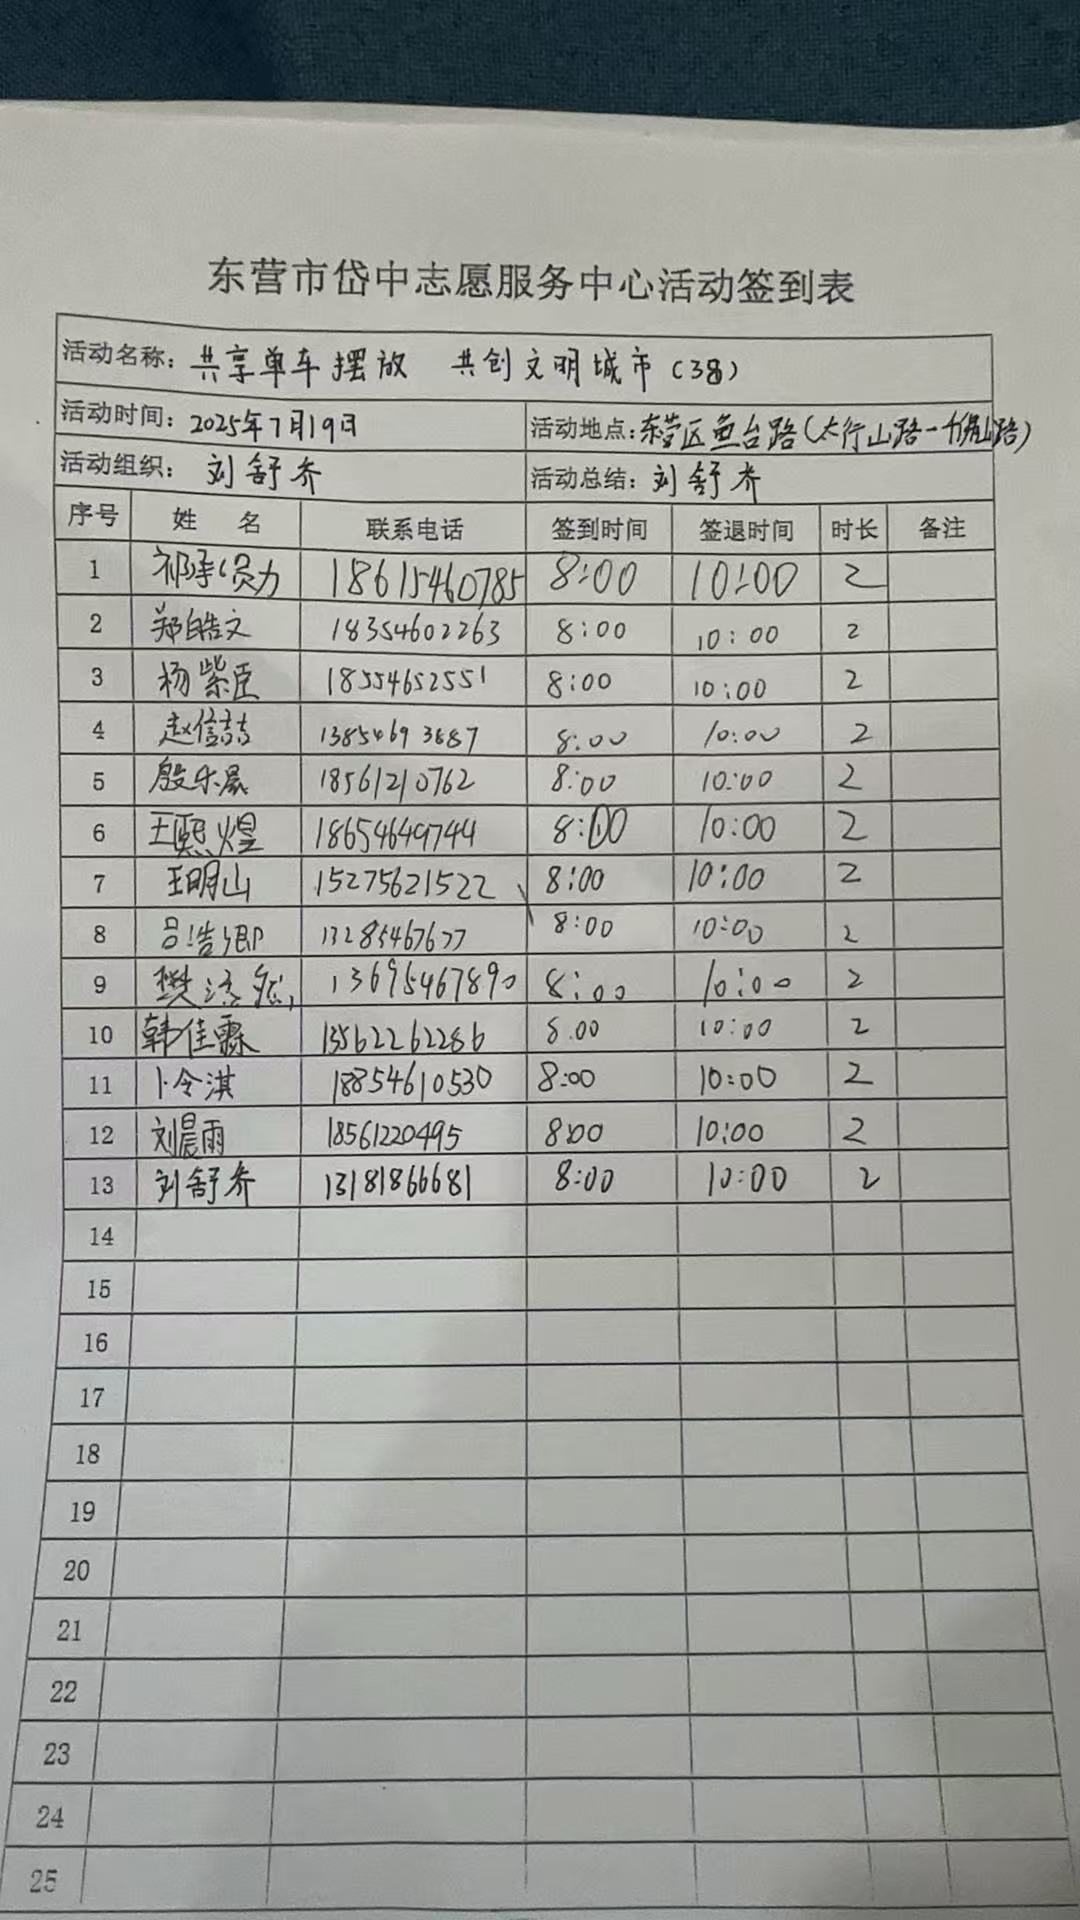 东营市岱中志愿服务中心活动签到表
活动名称：共享单车摆放 共创文明城市（38）
活动时间：2025年7月19日 活动地点：东营区鱼台路（太行山路一千佛山路）
活动组织：刘舒乔 活动总结：刘舒乔
序号 姓名 联系电话 签到时间 签退时间 时长 备注
1 祁 18615460785 8:00 10:00 2
2 郑皓文 18354602263 8:00 10:00 2
3 杨紫臣 18554652551 8:00 10:00 2
4 赵信喆 13854693887 8:00 10:00 2
5 殷乐晨 18561210762 8:00 10:00 2
6 王熙煌 18654649744 8:00 10:00 2
7 王明山 15275621522 8:00 10:00 2
8 吕浩 13285467677 8:00 10:00 2
9 樊 13695467890 8:00 10:00 2
10 韩佳霖 13562262286 8:00 10:00 2
11 卜令淇 18854610530 8:00 10:00 2
12 刘晨雨 18561220495 8:00 10:00 2
13 刘舒乔 13181866681 8:00 10:00 2
14
15
16
17
18
19
20
21
22
23
24
25